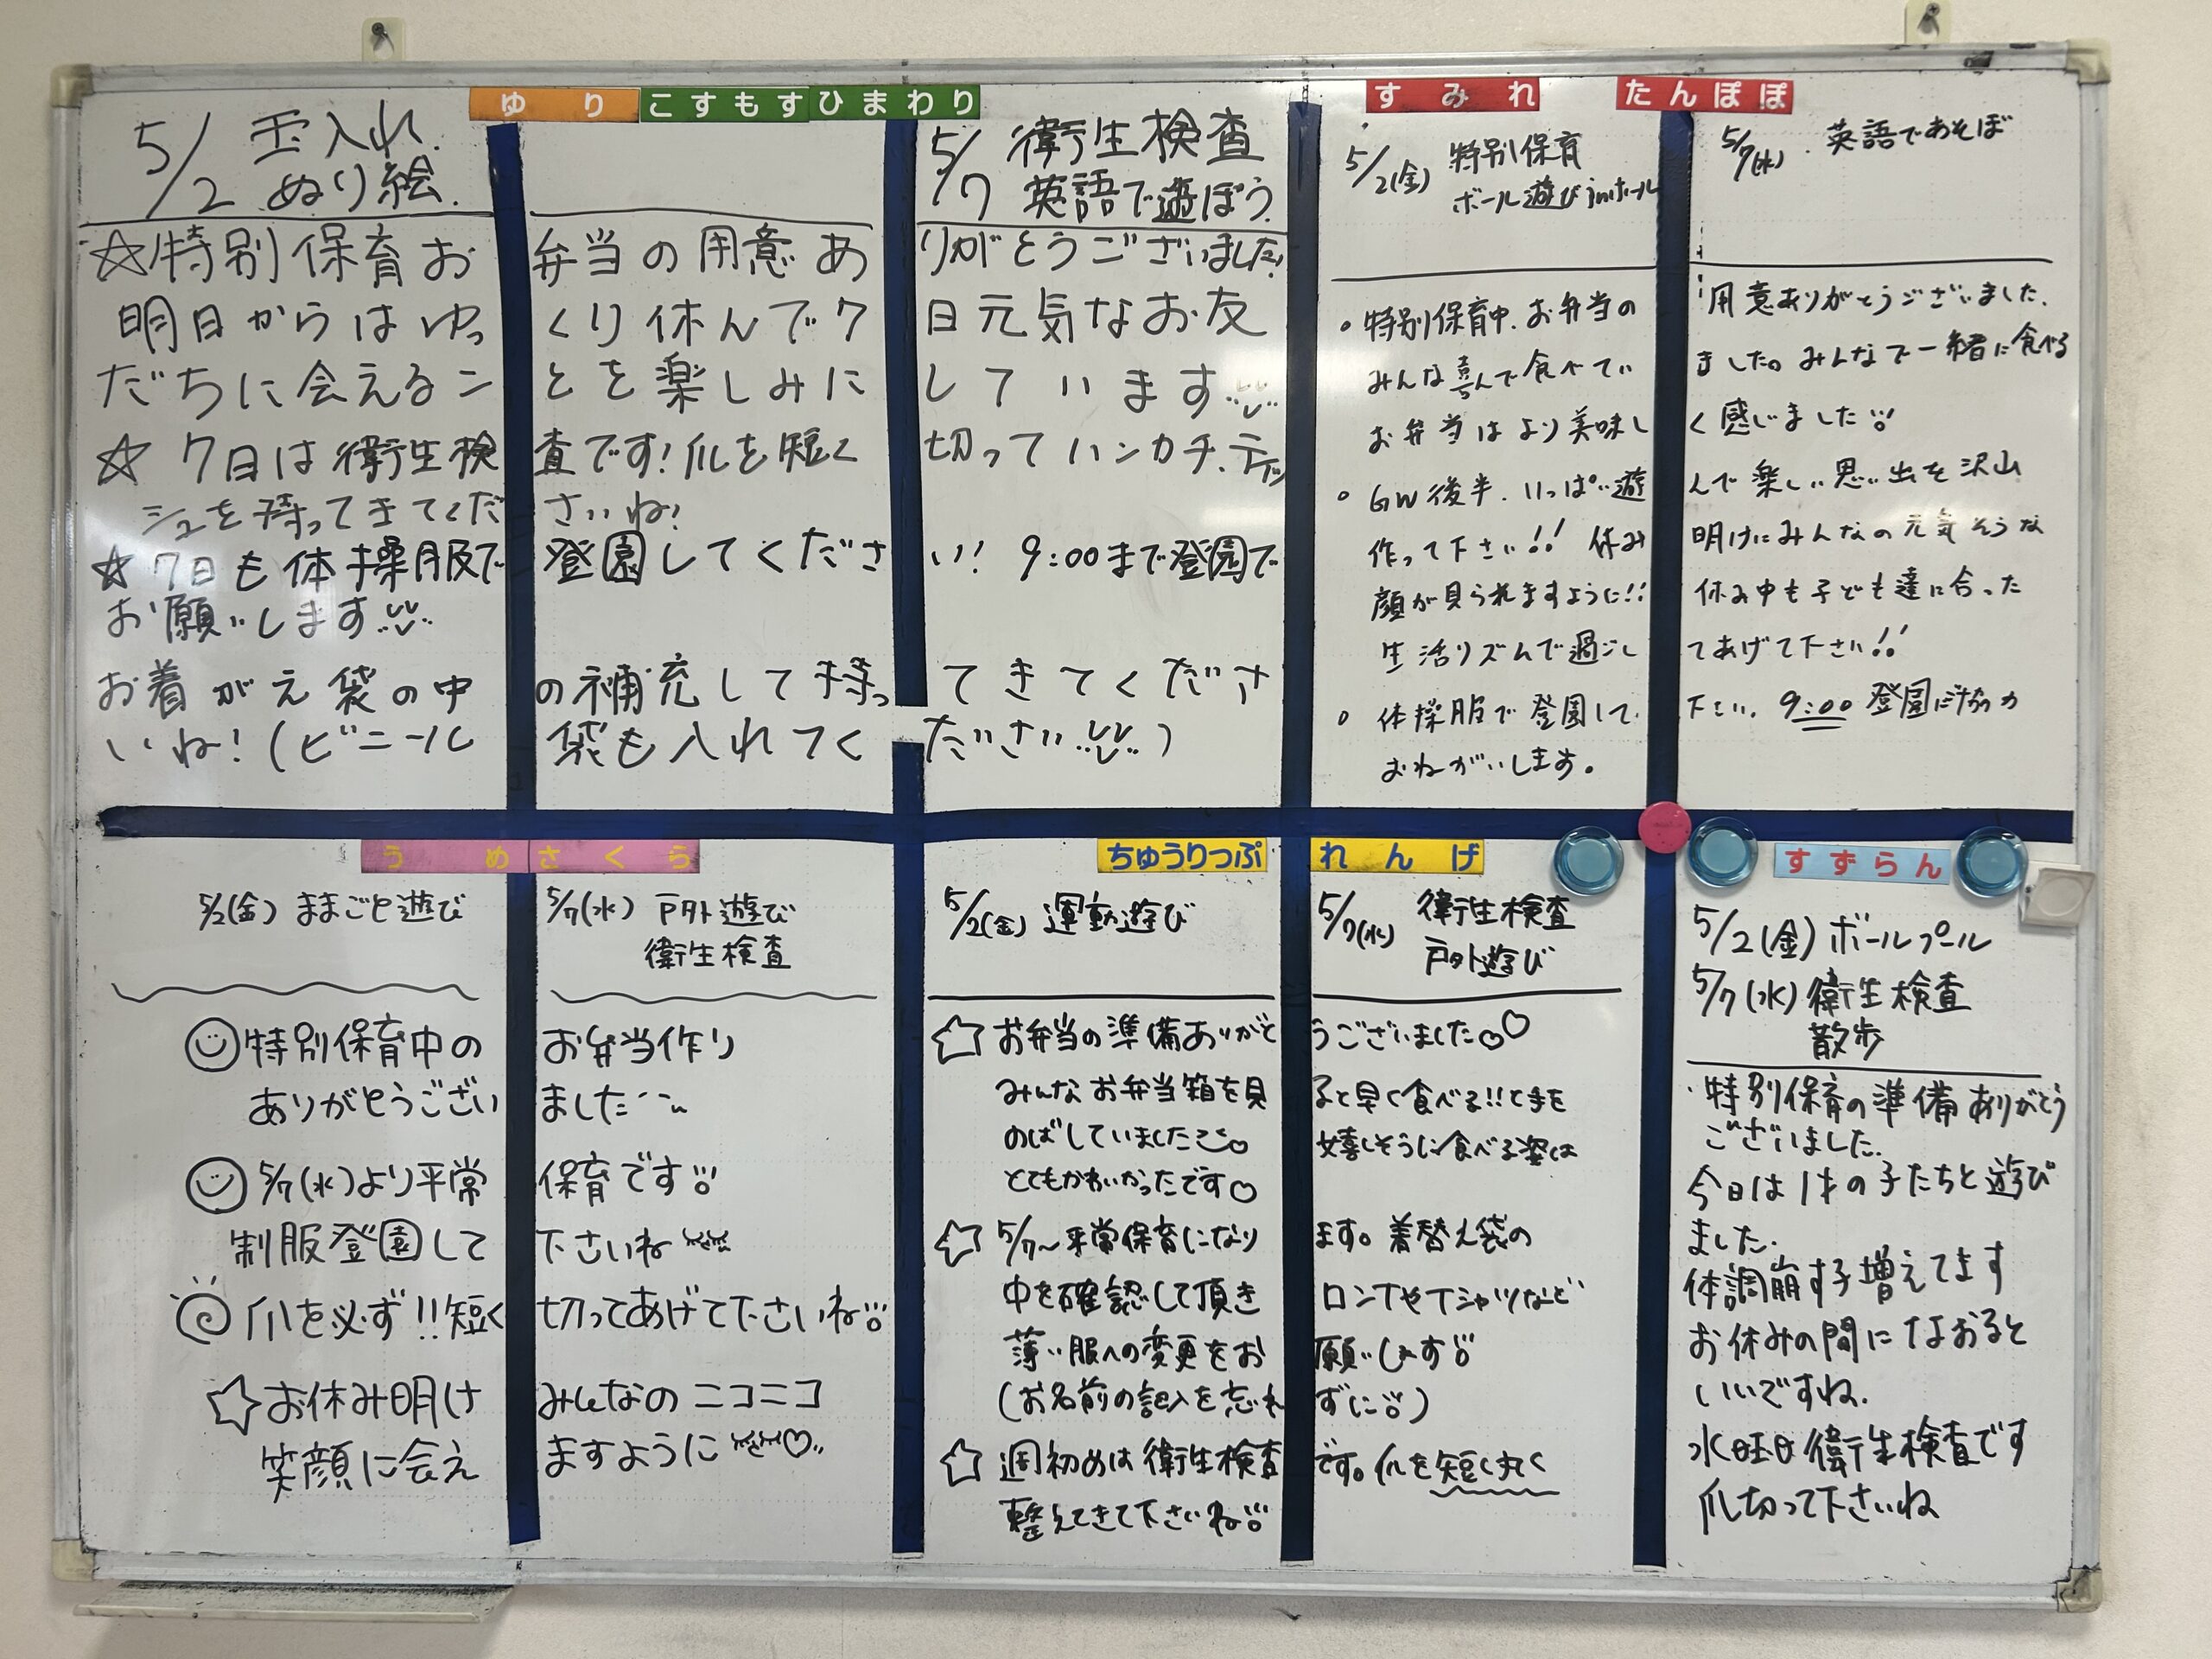 ゆり こすもす ひまわり
5/2 玉入れ.
ぬり絵.
5/7 衛生検査
英語で遊ぼう.
☆特別保育お弁当の用意ありがとうございました!
明日からはゆっくり休んで7日元気なお友
だちに会えることを楽しみにしています
☆ 7日は衛生検査です!爪を短く切ってハンカチ.ティッ
シュを持ってきてくださいね!
☆ 7日も体操服で登園してください! 9:00まで登園で
お願いします
お着がえ袋の中の補充して持ってきてくださ
いね!(ビニール袋も入れてください)
すみれ たんぽぽ
5/2(金) 特別保育
ボール遊びinホール
5/7(水). 英語であそぼ
○特別保育中.お弁当の用意ありがとうございました.
みんな喜んで食べていました。みんなで一緒に食べる
お弁当はより美味しく感じました
○ GW後半.いっぱい遊んで楽しい思い出を沢山
作って下さい!! 休み明けにみんなの元気そうな
顔が見られますように!! 休み中も子ども達に合った
生活リズムで過ごしてあげて下さい!!
○ 体操服で登園して下さい. 9:00登園に協力
おねがいします。
うめ さくら
5/2(金) ままごと遊び
5/7(水) 戸外遊び
衛生検査
特別保育中のお弁当作り
ありがとうございました
5/7(水)より平常保育です
制服登園して下さいね
爪を必ず!!短く切ってあげて下さいね
☆お休み明けみんなのニコニコ
笑顔に会えますように♡
ちゅうりっぷ れんげ
5/2(金) 運動遊び
5/7(水) 衛生検査
戸外遊び
☆ お弁当の準備ありがとうございました♡♡
みんなお弁当箱を見ると早く食べる!!と手を
のばしていました♡ 嬉しそうに食べる姿は
とてもかわいかったです♡
☆ 5/7〜平常保育になります。着替え袋の
中を確認して頂きロンTやTシャツなど
薄い服への変更をお願いします
(お名前の記入を忘れずに)
☆ 週初めは衛生検査です。爪を短く丸く
整えてきて下さいね
すずらん
5/2(金)ボールプール
5/7(水)衛生検査
散歩
・特別保育の準備ありがとう
ございました.
今日は1才の子たちと遊び
ました.
体調崩す子増えてます
お休みの間になおると
いいですね.
水曜日衛生検査です
爪切って下さいね